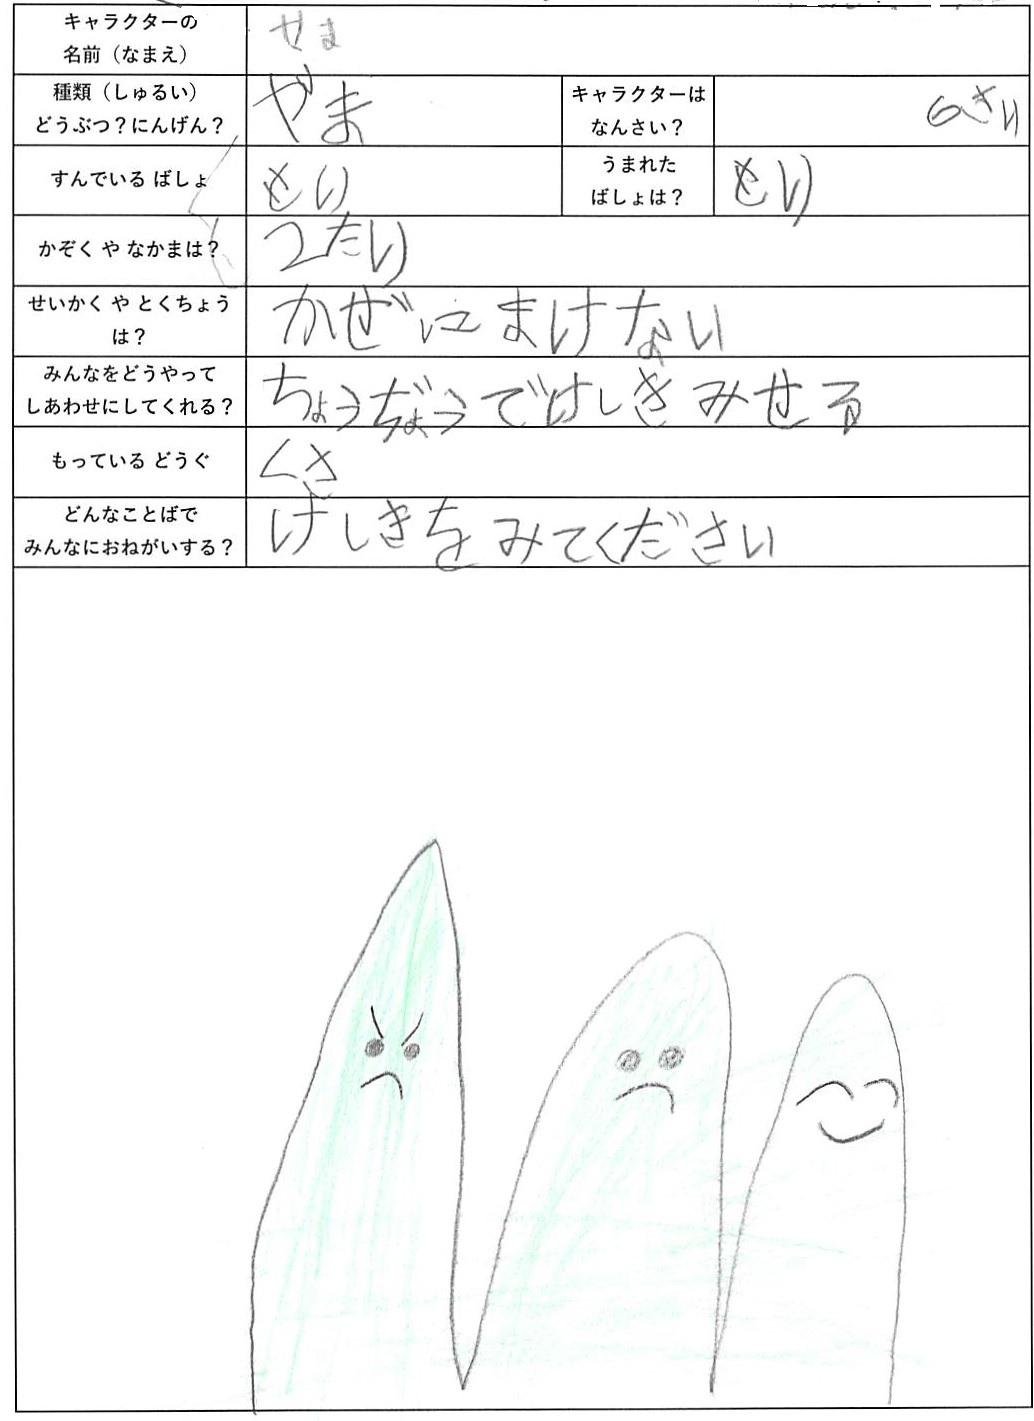 キャラクターの
名前（なまえ）
せま
種類（しゅるい）
どうぶつ？にんげん？
やま
キャラクターは
なんさい？
6さい
すんでいる ばしょ
もり
うまれた
ばしょは？
もり
かぞく や なかまは？
2たり
せいかく や とくちょう
は？
かぜにまけない
みんなをどうやって
しあわせにしてくれる？
ちょうぢょうでけしきみせる
もっている どうぐ
くさ
どんなことばで
みんなにおねがいする？
けしきをみてください